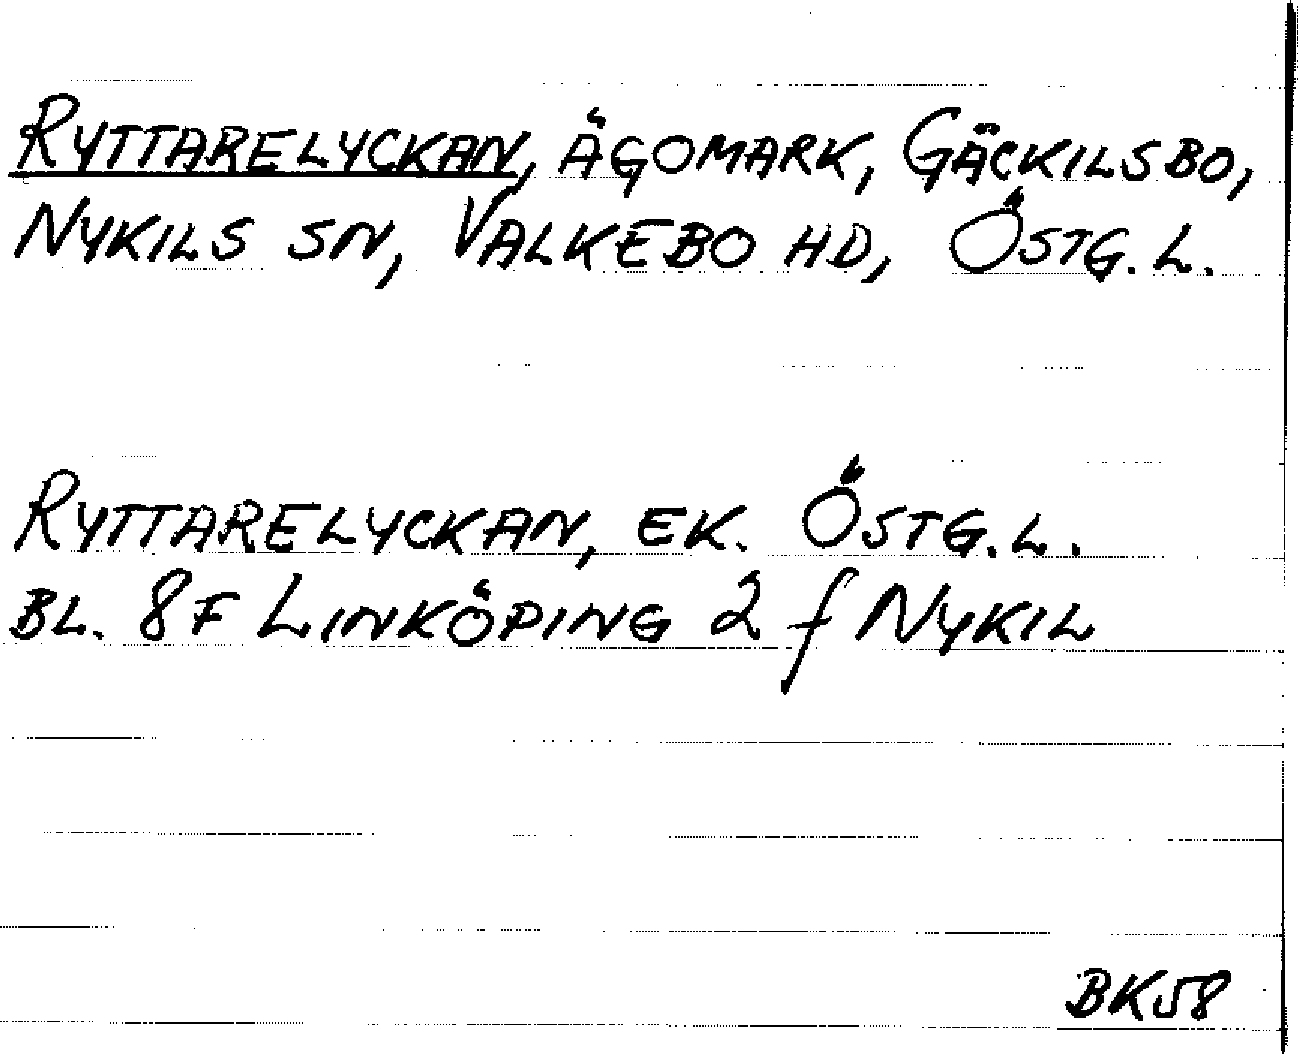 RYTTARELYCKAN, ÄGOMARK, GÄCKILSBO,
NYKILS SN, VALKEBO HD, ÖSTG. L.
RYTTARELYCKAN, EK. ÖSTG. L.
BL. 8F LINKÖPING 2 f NYKIL
BK58